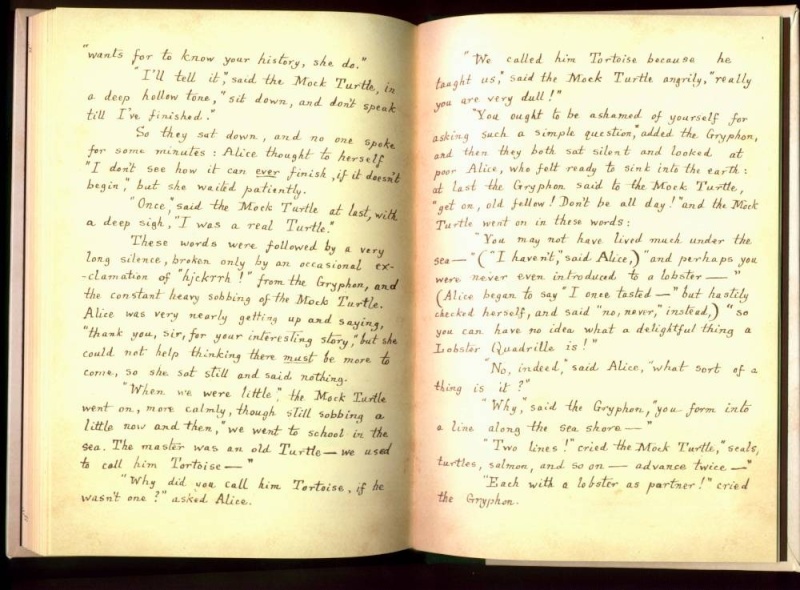 "wants for to know your history, she do."
"I'll tell it," said the Mock Turtle, in
a deep hollow tone, "sit down, and don't speak
till I've finished."
So they sat down, and no one spoke
for some minutes: Alice thought to herself
"I don't see how it can ever finish, if it doesn't
begin," but she waited patiently.
"Once," said the Mock Turtle at last, with
a deep sigh, "I was a real Turtle."
These words were followed by a very
long silence, broken only by an occasional ex-
-clamation of "hjckrrh!" from the Gryphon, and
the constant heavy sobbing of the Mock Turtle.
Alice was very nearly getting up and saying,
"thank you, sir, for your interesting story," but she
could not help thinking there must be more to
come, so she sat still and said nothing.
"When we were little," the Mock Turtle
went on, more calmly, though still sobbing a
little now and then, "we went to school in the
sea. The master was an old Turtle — we used
to call him Tortoise — "
"Why did you call him Tortoise, if he
wasn't one?" asked Alice.
"We called him Tortoise because he
taught us," said the Mock Turtle angrily, "really
you are very dull!"
"You ought to be ashamed of yourself for
asking such a simple question," added the Gryphon,
and then they both sat silent and looked at
poor Alice, who felt ready to sink into the earth:
at last the Gryphon said to the Mock Turtle,
"get on, old fellow! Don't be all day!" and the Mock
Turtle went on in these words:
"You may not have lived much under the
sea — " ("I haven't," said Alice,) "and perhaps you
were never even introduced to a lobster — "
(Alice began to say "I once tasted — " but hastily
checked herself, and said "no, never," instead,) "so
you can have no idea what a delightful thing a
Lobster Quadrille is!"
"No, indeed," said Alice, "what sort of a
thing is it?"
"Why," said the Gryphon, "you form into
a line along the sea shore — "
"Two lines!" cried the Mock Turtle, "seals,
turtles, salmon, and so on — advance twice — "
"Each with a lobster as partner!" cried
the Gryphon.